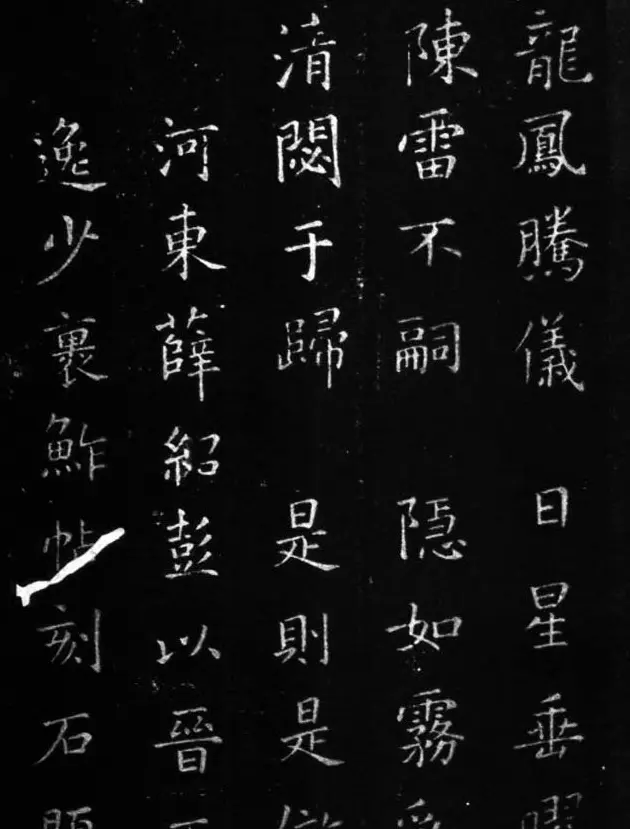 龍鳳騰儀 日星垂曜
陳雷不嗣 隱如霧
清閟于歸 是則是
河東薛紹彭以晉
逸少裹鮓帖刻石